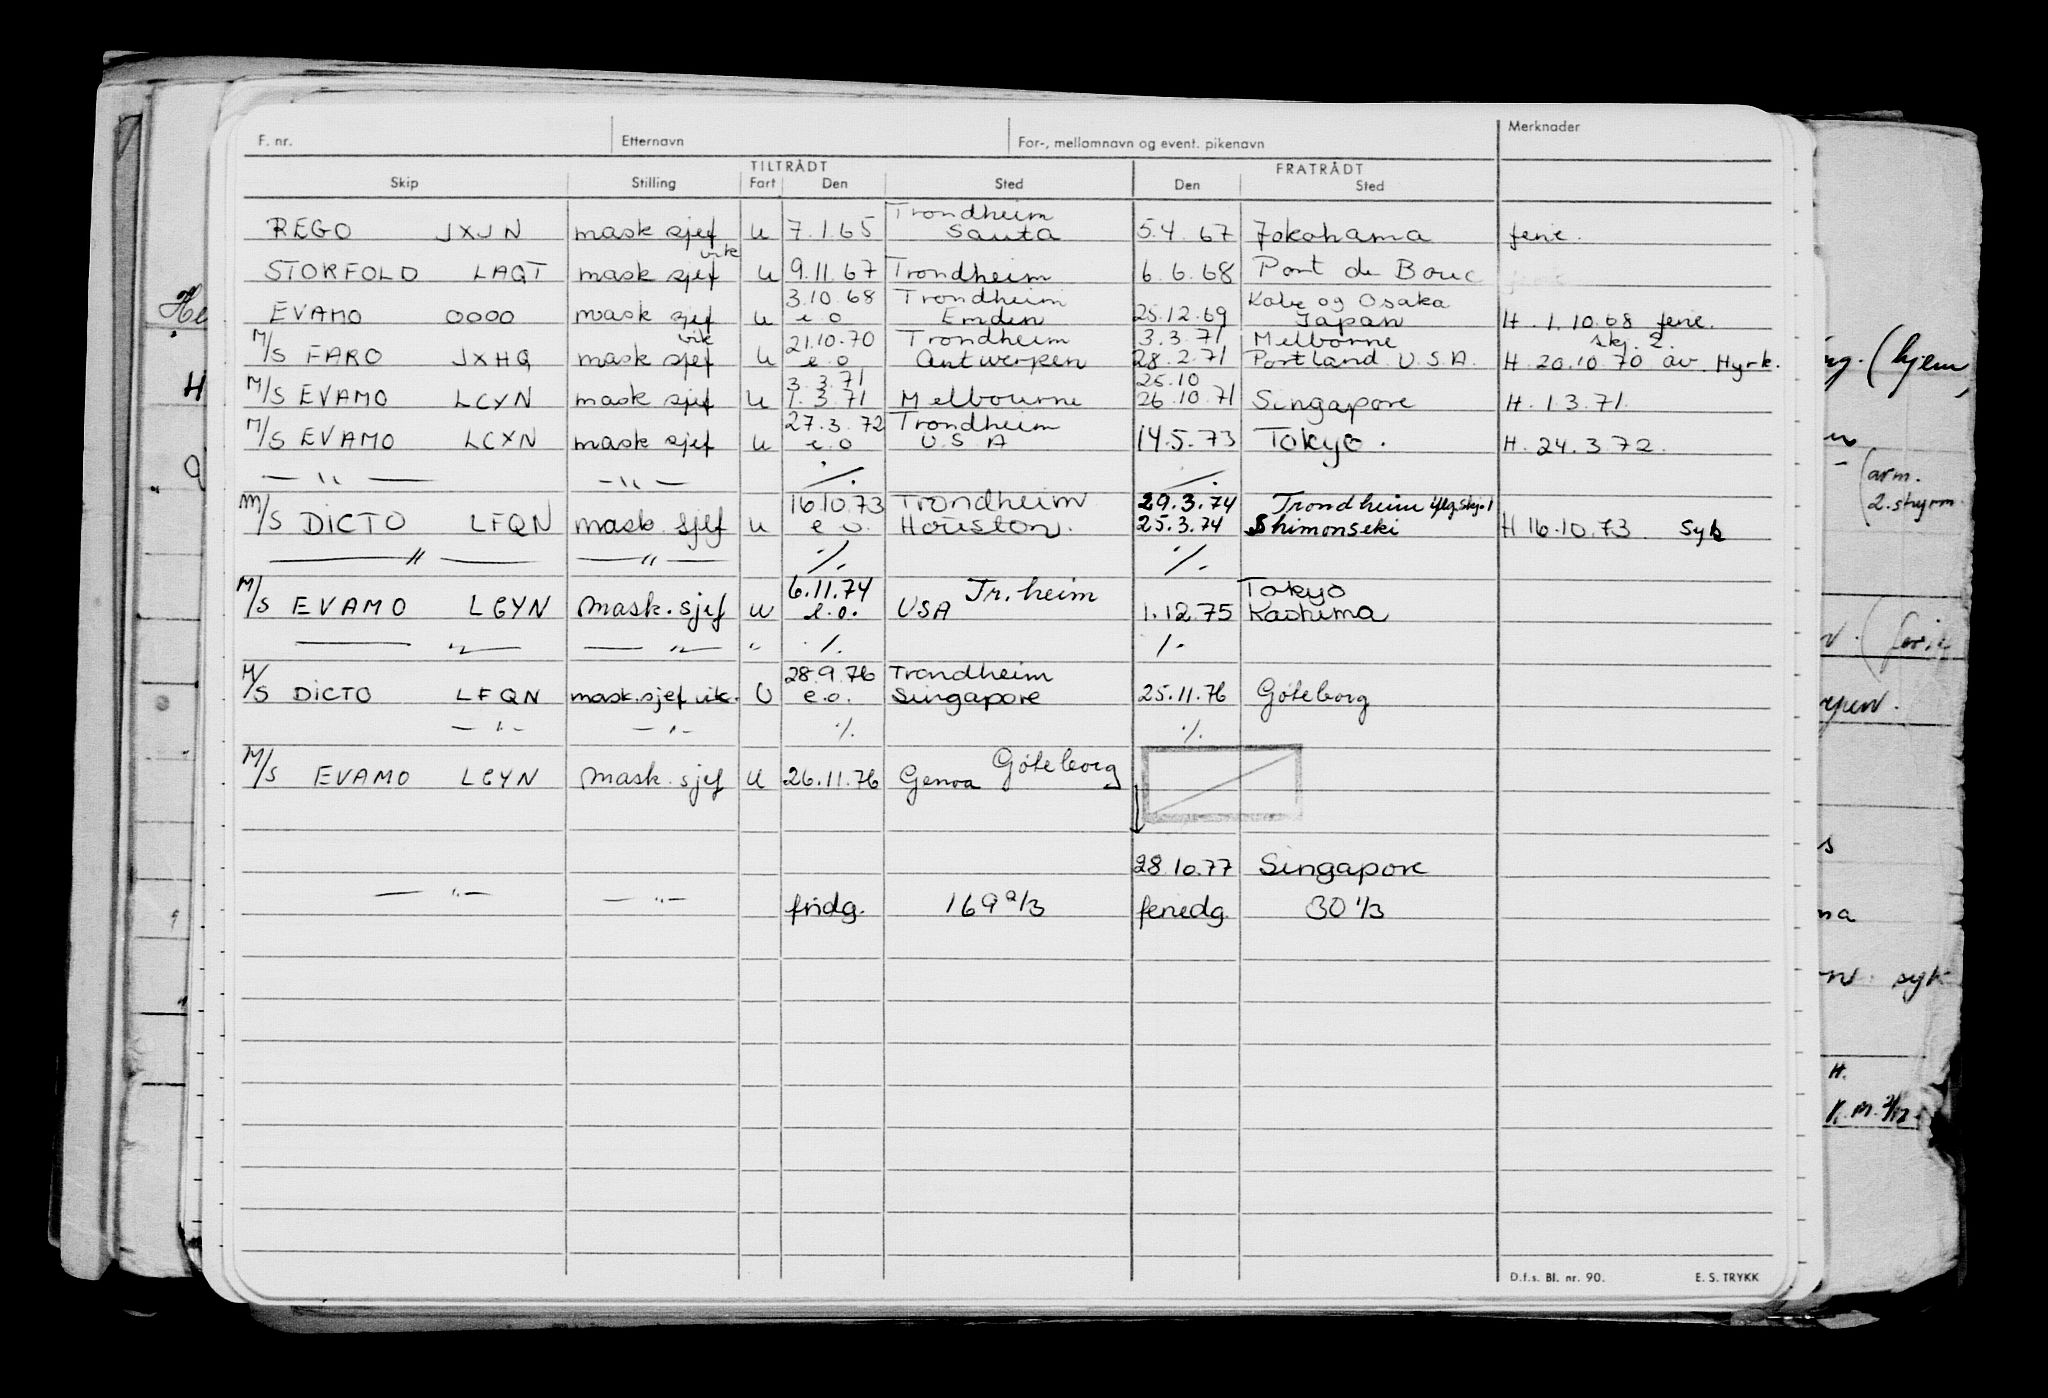 F. nr. Etternavn For-, mellomnavn og event. pikenavn Merknader
TILTRÅDT FRATRÅDT
Skip Stilling Fart Den Sted Den Sted
Trondheim
REGO JXJN mask sjef U 7.1.65 Sauta 5.4.67 Jokohama ferie.
vik
STORFOLD LAQT mask sjef U 9.11.67 Trondheim 6.6.68 Port de Bouc
3.10.68 Trondheim Kobe og Osaka
EVAMO OOOO mask sjef U e.o Emden 25.12.69 Japan H. 1.10.68 ferie.
vik 21.10.70 Trondheim 3.3.71 Melborne skj. 2.
M/S FARO JXHQ mask sjef U e.o Antwerpen 28.2.71 Portland U.S.A. H. 20.10.70 av. Hyrk.
3.3.71 25.10
M/S EVAMO LCYN mask sjef U 1.3.71 Melbourne 26.10.71 Singapore H. 1.3.71.
27.3.72 Trondheim
M/S EVAMO LCXN mask sjef U e.o U.S.A 14.5.73 Tokyo. H. 24.3.72.
— " — — " — ·/. ·/.
16.10.73 Trondheim 29.3.74 Trondheim iflg. skj. 1
M/S DICTO LFQN mask. sjef U e.o. Houston. 25.3.74 Shimonseki H 16.10.73 Syk
— " — — " — ·/. ·/.
6.11.74 Tr.heim Tokyo
M/S EVAMO LGYN Mask. sjef U e.o. USA 1.12.75 Kashima
— " — — " — " ·/. ·/.
28.9.76 Trondheim
M/S DICTO LFQN mask. sjef vik. U e.o. Singapore 25.11.76 Göteborg
— " — — " — ·/. ·/.
M/S EVAMO LGYN Mask. sjef U 26.11.76 Genoa Göteborg
28.10.77 Singapore
— " — — " — fridg. 169 2/3 feriedg. 30 1/3
D.f.s. Bl. nr. 90. E. S. TRYKK
(hjem,
(arm.
2. styrm.
syk
H.